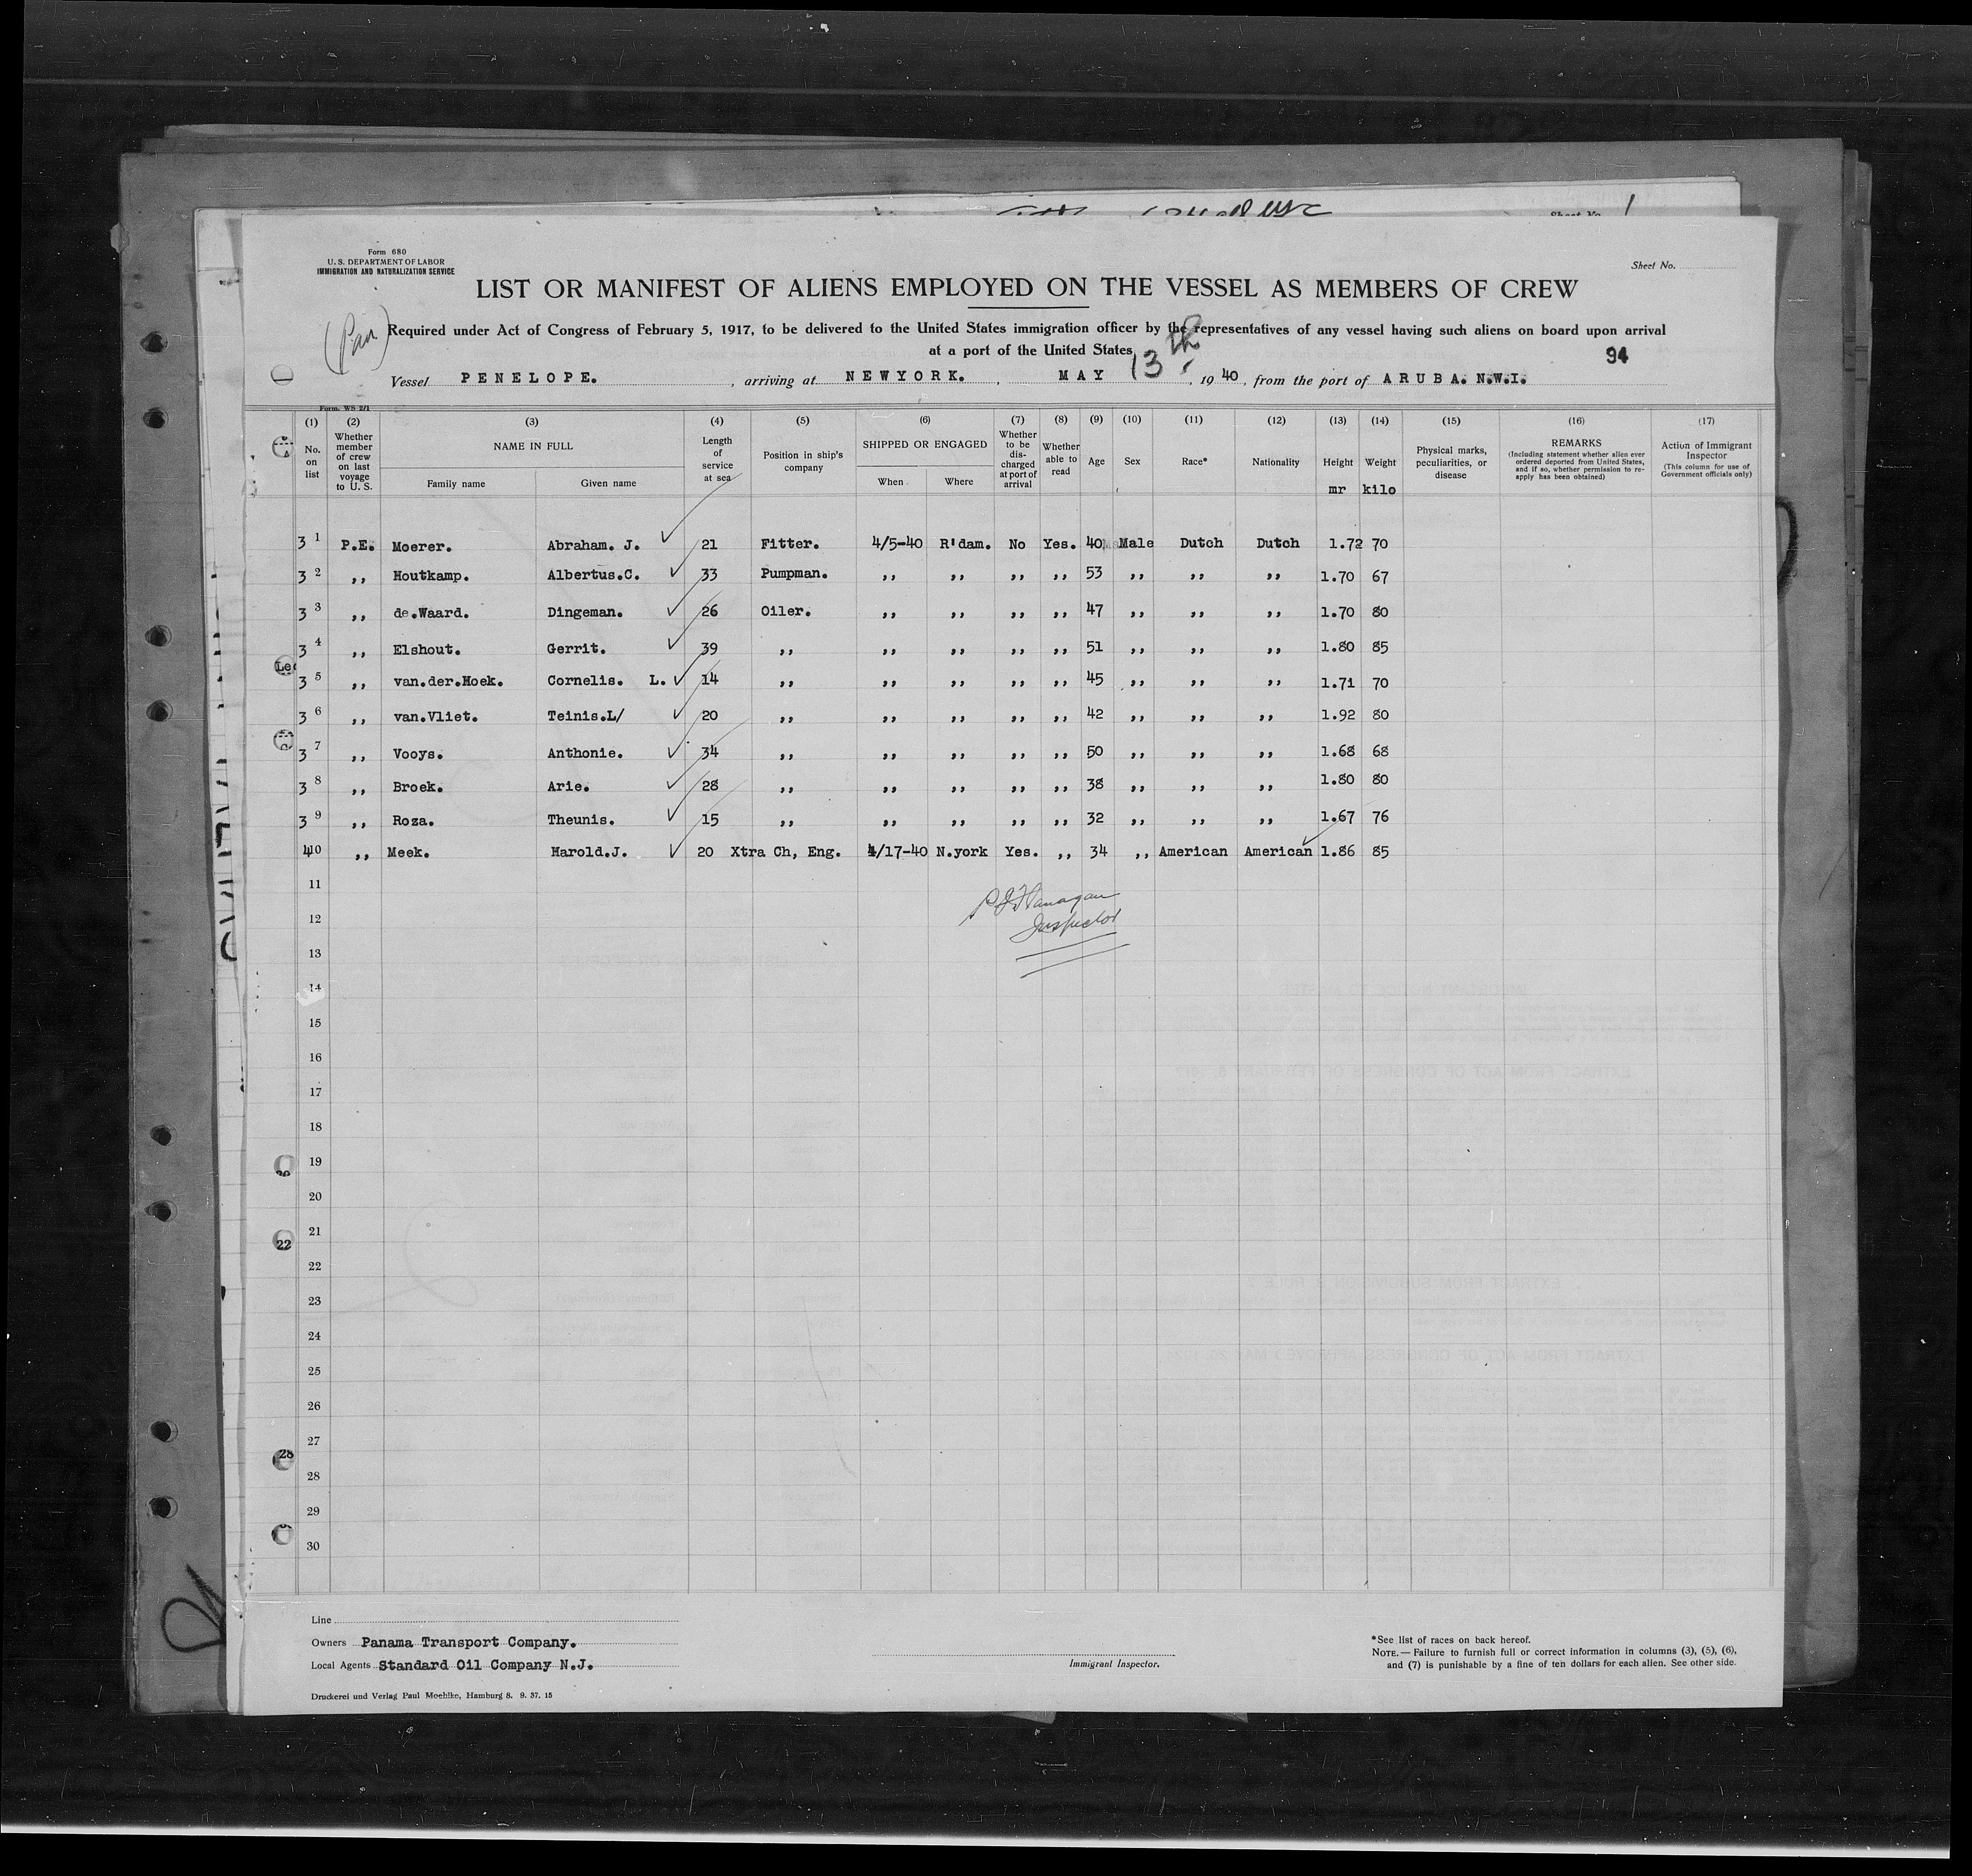 Sheet No.
Form 680
U. S. DEPARTMENT OF LABOR
IMMIGRATION AND NATURALIZATION SERVICE
Sheet No.
LIST OR MANIFEST OF ALIENS EMPLOYED ON THE VESSEL AS MEMBERS OF CREW
(Pan)
Required under Act of Congress of February 5, 1917, to be delivered to the United States immigration officer by the representatives of any vessel having such aliens on board upon arrival
at a port of the United States
94
Vessel PENELOPE. , arriving at NEWYORK. , MAY 13th , 1940, from the port of ARUBA. N.W.I.
Form. WS 2/1
(1) (2) (3) (4) (5) (6) (7) (8) (9) (10) (11) (12) (13) (14) (15) (16) (17)
No. on list
Whether member of crew on last voyage to U. S.
NAME IN FULL
Family name Given name
Length of service at sea
Position in ship's company
SHIPPED OR ENGAGED
When Where
Whether to be discharged at port of arrival
Whether able to read
Age
Sex
Race*
Nationality
Height mr
Weight kilo
Physical marks, peculiarities, or disease
REMARKS
(Including statement whether alien ever ordered deported from United States, and if so, whether permission to reapply has been obtained)
Action of Immigrant Inspector
(This column for use of Government officials only)
3 1 P.E. Moerer. Abraham. J. 21 Fitter. 4/5-40 R'dam. No Yes. 40 Male Dutch Dutch 1.72 70
3 2 ,, Houtkamp. Albertus.C. 33 Pumpman. ,, ,, ,, ,, 53 ,, ,, ,, 1.70 67
3 3 ,, de.Waard. Dingeman. 26 Oiler. ,, ,, ,, ,, 47 ,, ,, ,, 1.70 80
3 4 ,, Elshout. Gerrit. 39 ,, ,, ,, ,, ,, 51 ,, ,, ,, 1.80 85
3 5 ,, van.der.Hoek. Cornelis. L. 14 ,, ,, ,, ,, ,, 45 ,, ,, ,, 1.71 70
3 6 ,, van.Vliet. Teinis.L/ 20 ,, ,, ,, ,, ,, 42 ,, ,, ,, 1.92 80
3 7 ,, Vooys. Anthonie. 34 ,, ,, ,, ,, ,, 50 ,, ,, ,, 1.68 68
3 8 ,, Broek. Arie. 28 ,, ,, ,, ,, ,, 38 ,, ,, ,, 1.80 80
3 9 ,, Roza. Theunis. 15 ,, ,, ,, ,, ,, 32 ,, ,, ,, 1.67 76
410 ,, Meek. Harold.J. 20 Xtra Ch, Eng. 4/17-40 N.york Yes. ,, 34 ,, American American 1.86 85
11
P J Flanagan
12
Inspector
13
14
15
16
17
18
19
20
21
22
22
23
24
25
26
27
28
28
29
30
Line
Owners Panama Transport Company.
Local Agents Standard Oil Company N.J.
Immigrant Inspector.
*See list of races on back hereof.
NOTE.— Failure to furnish full or correct information in columns (3), (5), (6),
and (7) is punishable by a fine of ten dollars for each alien. See other side.
Druckerei und Verlag Paul Moehlke, Hamburg 8. 9. 37. 15